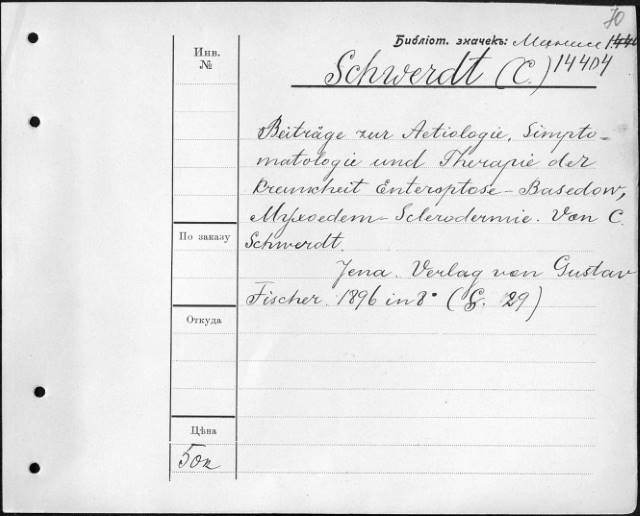 70
Библіот. значекъ:
Инв.
№
Schwerdt (C.) 14404
Beiträge zur Aetiologie, Simpto-
matologie und Therapie der
Krankheit Enteroptose - Basedow,
Myxoedem - Sclerodermie. Von C.
Schwerdt.
По заказу
Jena. Verlag von Gustav
Fischer. 1896 in 8° (S. 29)
Откуда
Цѣна
50к